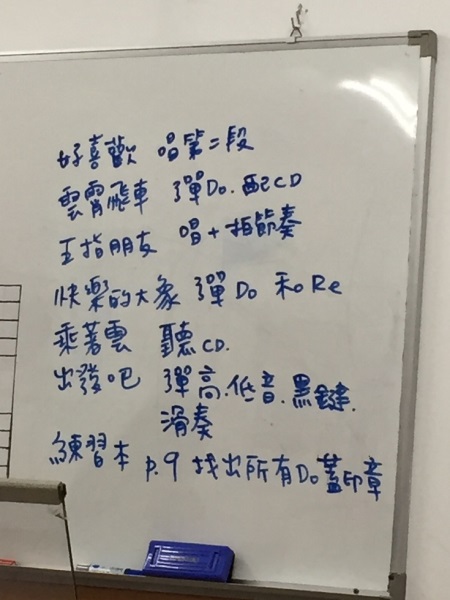 好喜歡 唱第二段
雲霄飛車 彈Do.配CD
五指朋友 唱+拍節奏
快樂的大象 彈Do 和Re
乘著雲 聽CD.
出發吧 彈高.低音.黑鍵.
滑奏
練習本 p.9 找出所有Do蓋印章